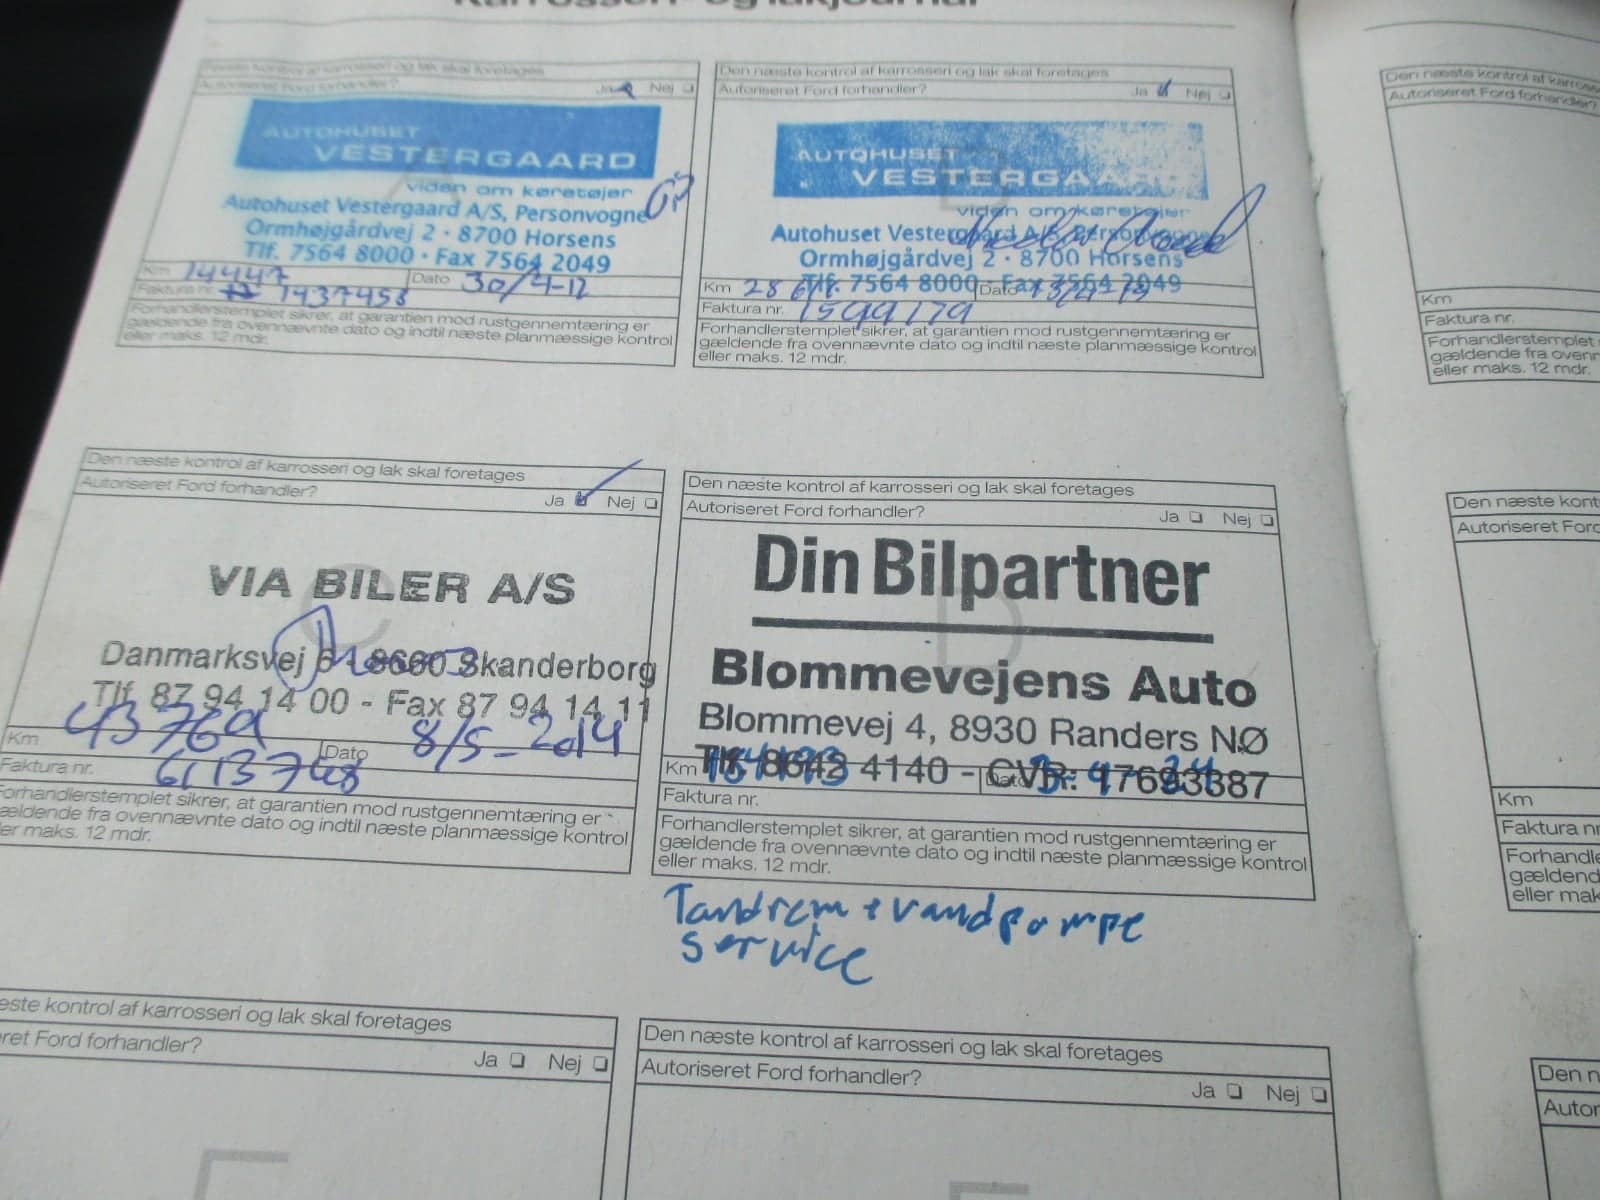 Karrosseri- og lakjournal
Første kontrol af karrosseri og lak skal foretages
Autoriseret Ford forhandler? Ja Nej
AUTOHUSET
VESTERGAARD
viden om køretøjer
Autohuset Vestergaard A/S, Personvogne
Ormhøjgårdvej 2 · 8700 Horsens
Tlf. 7564 8000 · Fax 7564 2049
Km 14447 Dato 30/4-12
Faktura nr. 1437458
Forhandlerstemplet sikrer, at garantien mod rustgennemtæring er
gældende fra ovennævnte dato og indtil næste planmæssige kontrol
eller maks. 12 mdr.
Den næste kontrol af karrosseri og lak skal foretages
Autoriseret Ford forhandler? Ja Nej
AUTOHUSET
VESTERGAARD
viden om køretøjer
Autohuset Vestergaard A/S, Personvogne
Ormhøjgårdvej 2 · 8700 Horsens
Tlf. 7564 8000 · Fax 7564 2049
Km Dato
Faktura nr. 1599179
Forhandlerstemplet sikrer, at garantien mod rustgennemtæring er
gældende fra ovennævnte dato og indtil næste planmæssige kontrol
eller maks. 12 mdr.
Den næste kontrol af karrosseri og lak skal foretages
Autoriseret Ford forhandler? Ja Nej
C
VIA BILER A/S
Danmarksvej 6 - 8660 Skanderborg
Tlf. 87 94 14 00 - Fax 87 94 14 11
Km 43769 Dato 8/5-2014
Faktura nr. 6113748
Forhandlerstemplet sikrer, at garantien mod rustgennemtæring er
gældende fra ovennævnte dato og indtil næste planmæssige kontrol
eller maks. 12 mdr.
Den næste kontrol af karrosseri og lak skal foretages
Autoriseret Ford forhandler? Ja Nej
D
Din Bilpartner
Blommevejens Auto
Blommevej 4, 8930 Randers NØ
Tlf. 8642 4140 - CVR: 17693387
Km Dato
Faktura nr.
Forhandlerstemplet sikrer, at garantien mod rustgennemtæring er
gældende fra ovennævnte dato og indtil næste planmæssige kontrol
eller maks. 12 mdr.
Tandrem + vandpompe
service
næste kontrol af karrosseri og lak skal foretages
Autoriseret Ford forhandler? Ja Nej
Den næste kontrol af karrosseri og lak skal foretages
Autoriseret Ford forhandler? Ja Nej
Den næste kontrol af karrosseri
Autoriseret Ford forhandler?
Km
Faktura nr.
Forhandlerstemplet
gældende fra ovenn
eller maks. 12 mdr.
Den næste kont
Autoriseret Ford
Km
Faktura nr
Forhandle
gældende
eller mak
Den n
Autor